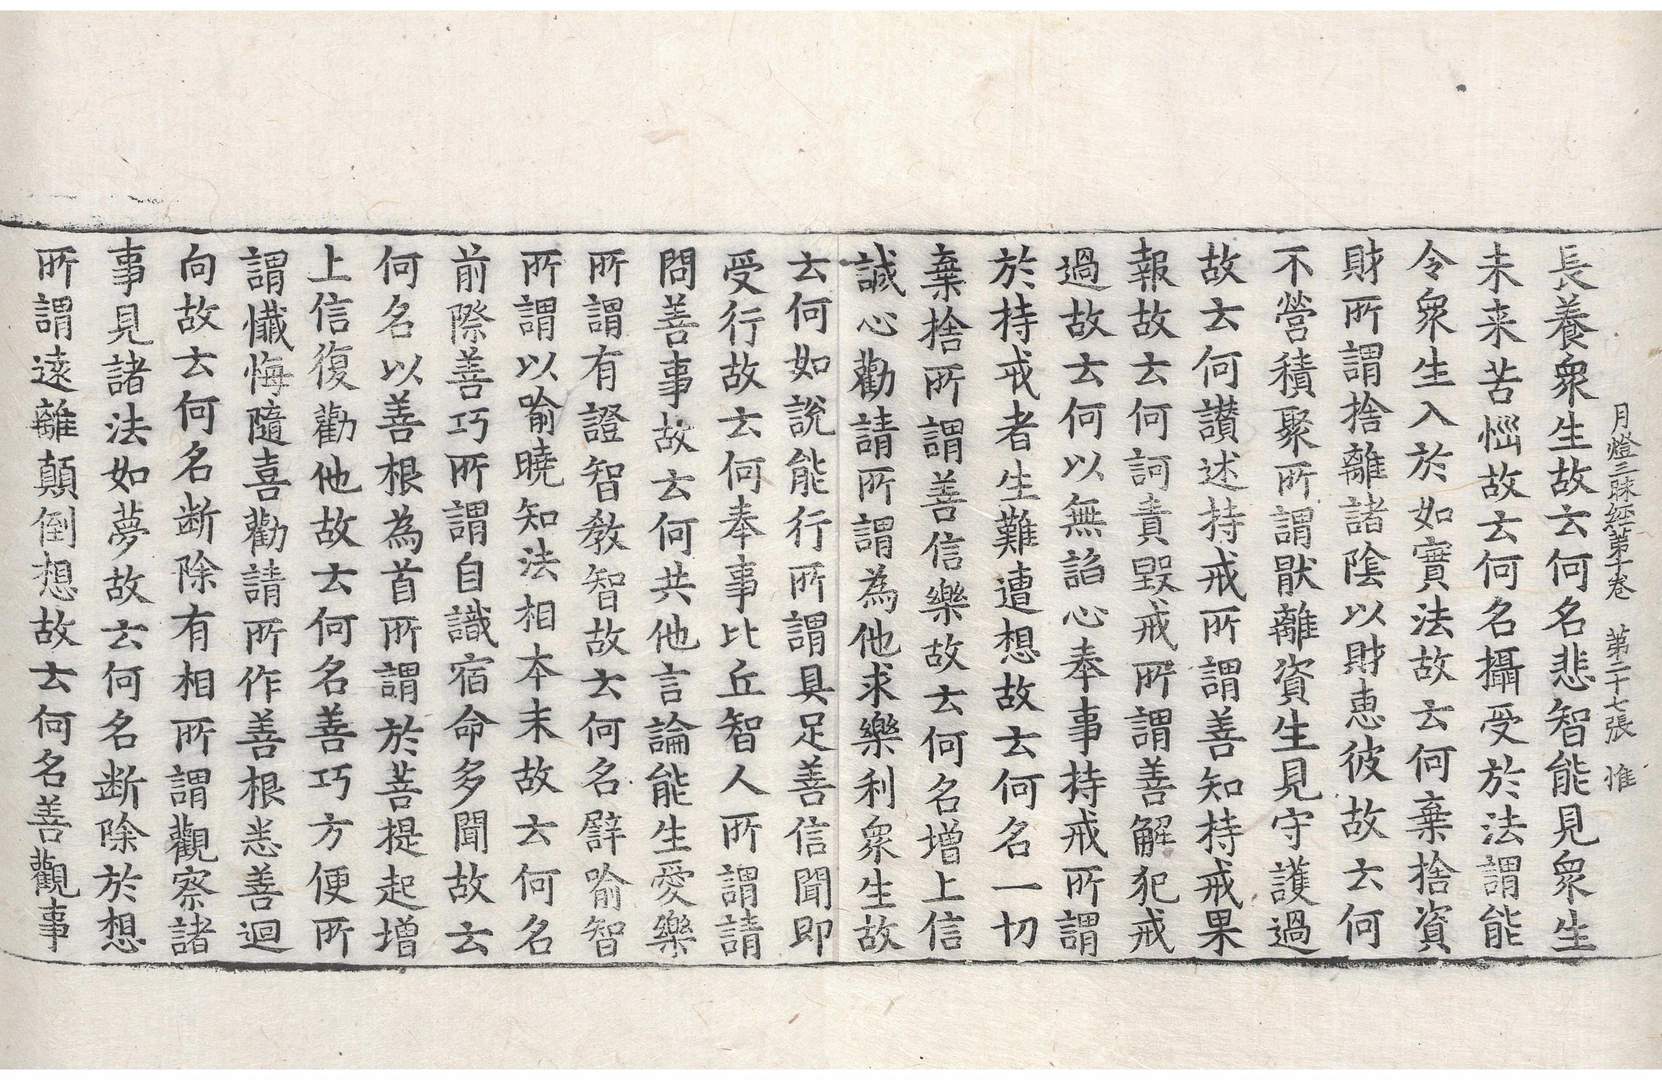 月燈三昧經第十卷　第二十七張　惟
長養衆生故云何名悲智能見衆生
未来苦惱故云何名攝受於法謂能
令衆生入於如實法故云何棄捨資
財所謂捨離諸陰以財惠彼故云何
不營積聚所謂猒離資生見守護過
故云何讃述持戒所謂善知持戒果
報故云何訶責毀戒所謂善解犯戒
過故云何以無諂心奉事持戒所謂
於持戒者生難遭想故云何名一切
棄捨所謂善信樂故云何名增上信
誠心勸請所謂為他求樂利衆生故
云何如說能行所謂具足善信聞即
受行故云何奉事比丘智人所謂請
問善事故云何共他言論能生愛樂
所謂有證智教智故云何名譬喻智
所謂以喻曉知法相本末故云何名
前際善巧所謂自識宿命多聞故云
何名以善根為首所謂於菩提起增
上信復勸他故云何名善巧方便所
謂懺悔隨喜勸請所作善根悉善迴
向故云何名断除有相所謂觀察諸
事見諸法如夢故云何名断除於想
所謂遠離顛倒想故云何名善觀事